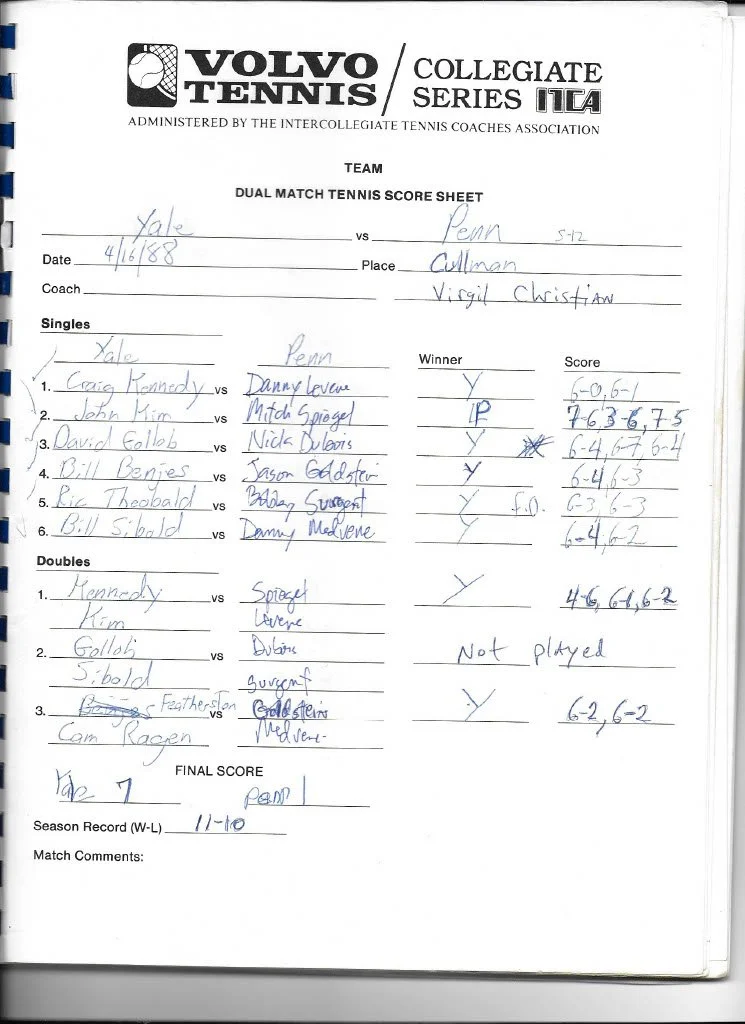 VOLVO TENNIS / COLLEGIATE SERIES ITCA
ADMINISTERED BY THE INTERCOLLEGIATE TENNIS COACHES ASSOCIATION
TEAM
DUAL MATCH TENNIS SCORE SHEET
Yale vs Penn 5-12
Date 4/16/88 Place Cullman
Coach Virgil Christian
Singles
Yale Penn Winner Score
1. Craig Kennedy vs Danny Levene Y 6-0, 6-1
2. John Kim vs Mitch Spiegel P 7-6, 3-6, 7-5
3. David Gollob vs Nick Dubois Y 6-4, 6-7, 6-4
4. Bill Benjes vs Jason Goldstein Y 6-4, 6-3
5. Ric Theobald vs Bobby Surgent Y f.o. 6-3, 6-3
6. Bill Sibold vs Danny Medvene Y 6-4, 6-2
Doubles
1. Kennedy vs Spiegel Y 4-6, 6-1, 6-2
Kim Levene
2. Gollob vs Dubois Not played
Sibold Surgent
3. Featherston vs Goldstein Y 6-2, 6-2
Cam Ragen Medvene
FINAL SCORE
Yale 7 Penn 1
Season Record (W-L) 11-10
Match Comments: